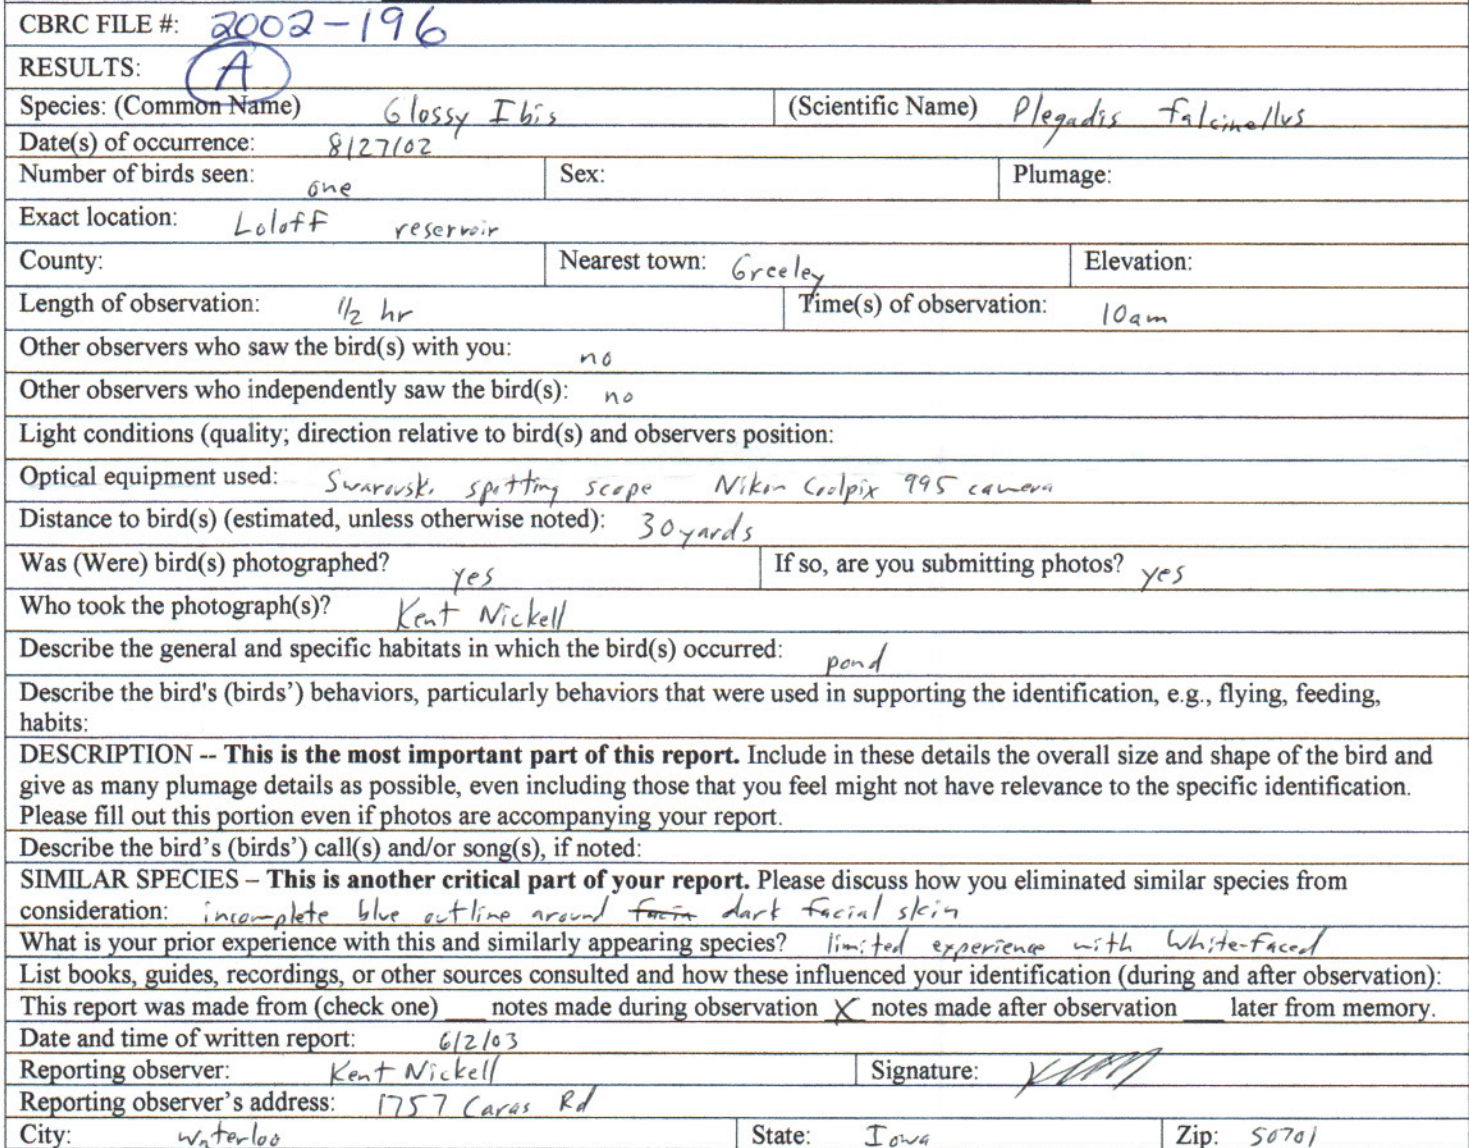 CBRC FILE #: 2002-196
RESULTS: A
Species: (Common Name) Glossy Ibis (Scientific Name) Plegadis falcinellus
Date(s) of occurrence: 8/27/02
Number of birds seen: one Sex: Plumage:
Exact location: Loloff reservoir
County: Nearest town: Greeley Elevation:
Length of observation: 1/2 hr Time(s) of observation: 10am
Other observers who saw the bird(s) with you: no
Other observers who independently saw the bird(s): no
Light conditions (quality; direction relative to bird(s) and observers position:
Optical equipment used: Swarovski spotting scope Nikon Coolpix 995 camera
Distance to bird(s) (estimated, unless otherwise noted): 30 yards
Was (Were) bird(s) photographed? yes If so, are you submitting photos? yes
Who took the photograph(s)? Kent Nickell
Describe the general and specific habitats in which the bird(s) occurred: pond
Describe the bird's (birds') behaviors, particularly behaviors that were used in supporting the identification, e.g., flying, feeding,
habits:
DESCRIPTION -- This is the most important part of this report. Include in these details the overall size and shape of the bird and
give as many plumage details as possible, even including those that you feel might not have relevance to the specific identification.
Please fill out this portion even if photos are accompanying your report.
Describe the bird's (birds') call(s) and/or song(s), if noted:
SIMILAR SPECIES – This is another critical part of your report. Please discuss how you eliminated similar species from
consideration: incomplete blue outline around dark facial skin
What is your prior experience with this and similarly appearing species? limited experience with White-faced
List books, guides, recordings, or other sources consulted and how these influenced your identification (during and after observation):
This report was made from (check one) ___ notes made during observation X notes made after observation ___ later from memory.
Date and time of written report: 6/2/03
Reporting observer: Kent Nickell Signature:
Reporting observer's address: 1757 Caras Rd
City: Waterloo State: Iowa Zip: 50701